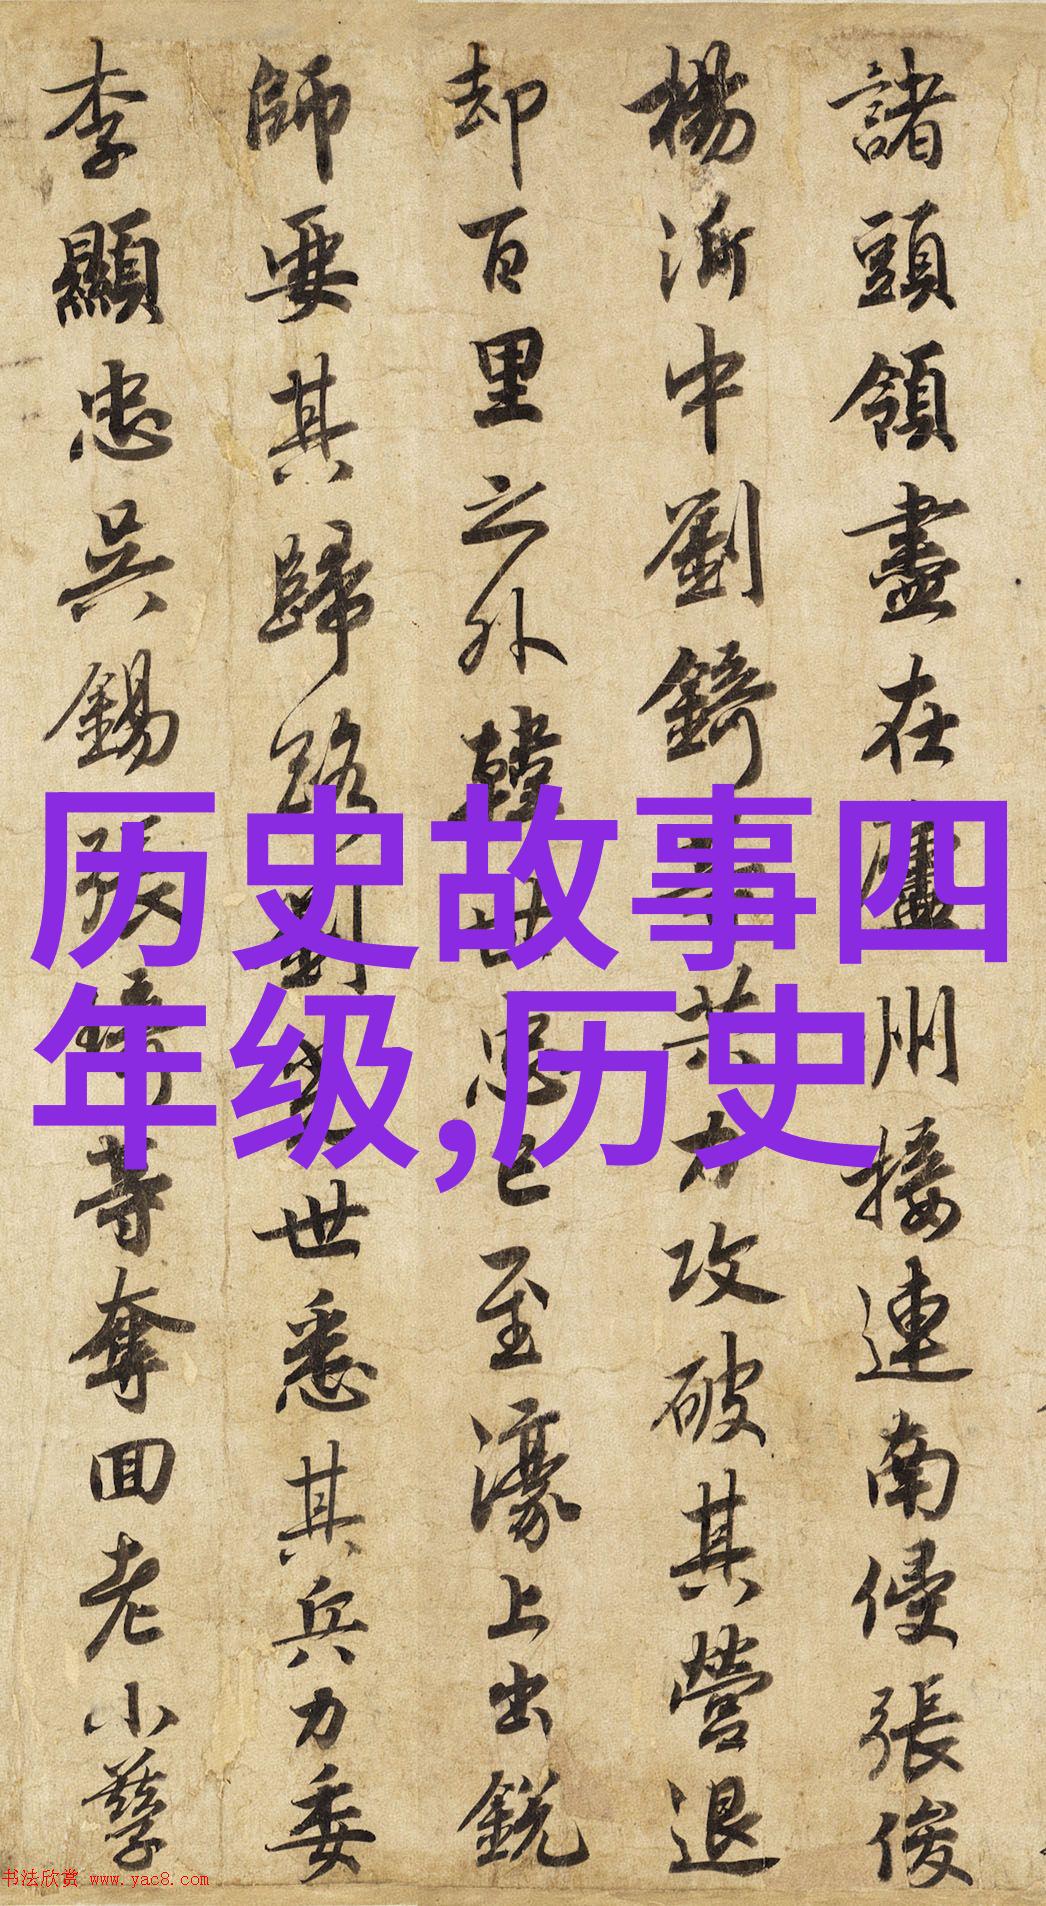 諸頭領盡在廬州接連南侵張俊
楊沂中劉錡等共力攻破其營退
却百里之外韓世忠已至濠上出銳
師要其歸路劉光世悉其兵力委
李顯忠吳錫張琦等奪回老小孳
历史故事四
年级,历史
书法欣赏 www.yac8.com